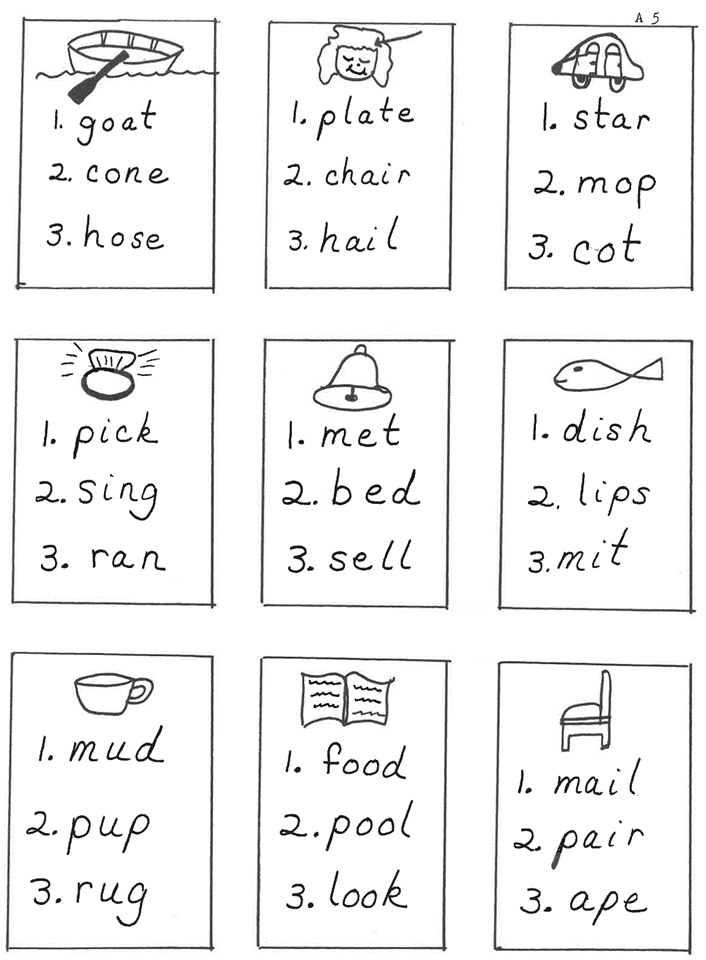 A 5
1. goat
2. cone
3. hose
1. plate
2. chair
3. hail
1. star
2. mop
3. cot
1. pick
2. sing
3. ran
1. met
2. bed
3. sell
1. dish
2. lips
3. mit
1. mud
2. pup
3. rug
1. food
2. pool
3. look
1. mail
2. pair
3. ape